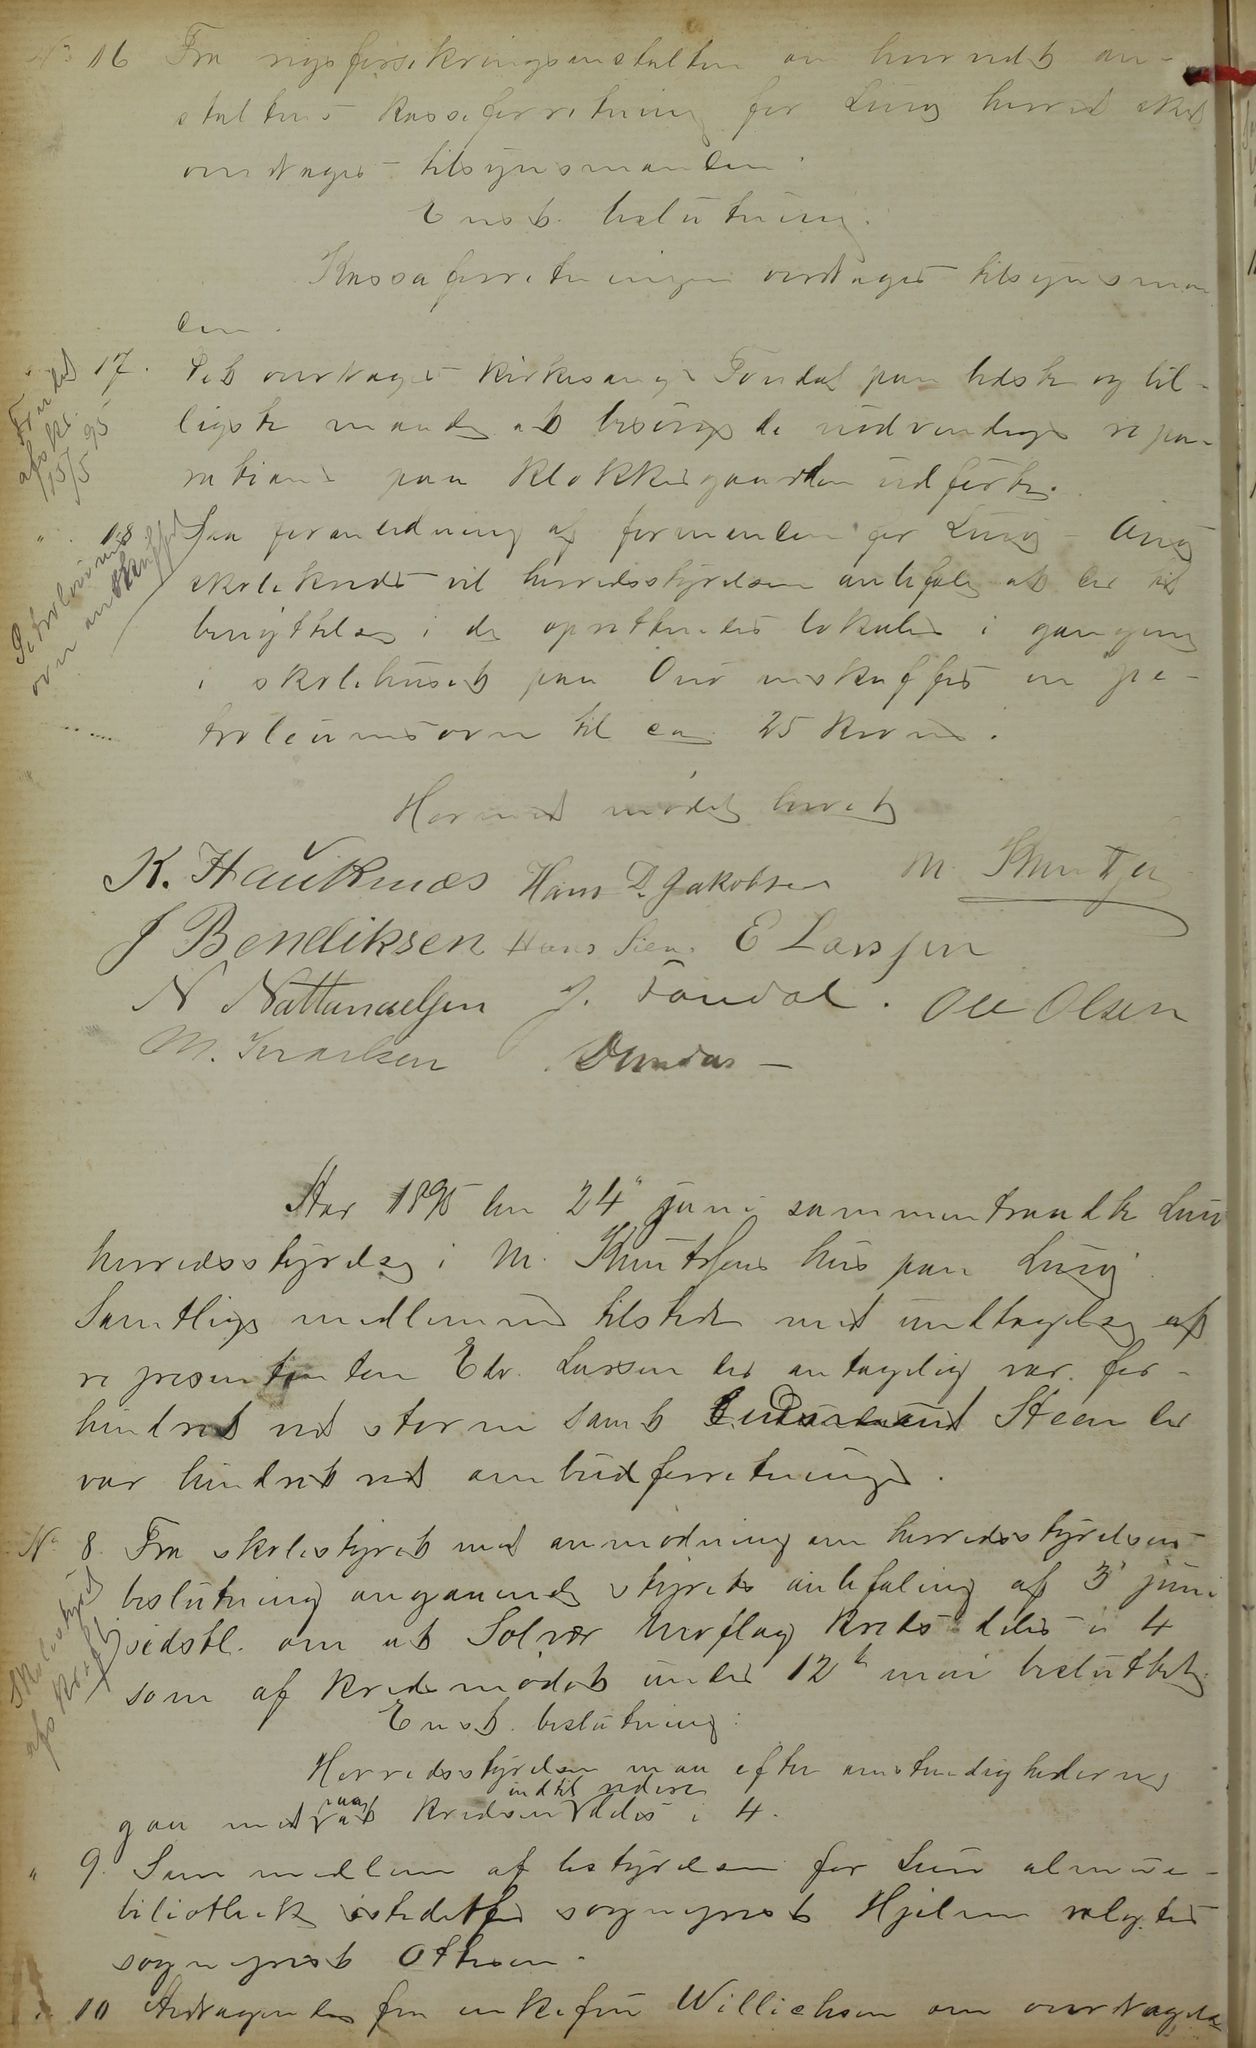 No 16 Fra rigsforsikringsanstalten om hvorvidt an-
staltens kasseforretning for Lurø herred skal
overdrages tilsynsmanden.
Enst. beslutning.
Kassaforretningen overdrages tilsynsman
den.
17. Det overdrages kirkesanger Tondal paa bedste og bil-
ligste maade at besørge de nødvendige repa-
rationer paa klokkergaarden udførte.
Tondal
afskr.
15/5 95
" 18. Paa foranledning af formanden for Lurø - Onø
skolekreds vil herredsstyrelsen anbefale at der til
benyttelse i de oprettendes lokaler i gangen
i skolehuset paa Onø anskaffes en pe-
troleumsovn til ca. 25 kroner.
Petroleums
ovn anskaffet
Hermed mødet hævet
K. Hauknæs Hans D. Jakobsen M. Knutsen
J Bendiksen Hans Sien. E Larssen
N Nattanaelsen J. Tondal. Ole Olsen
M. Ivarsen Dundas
Aar 1895 den 24 juni sammentraadte Lurø
herredsstyrelse i M. Knutsens hus paa Lurø.
Samtlige medlemmer tilstede med undtagelse af
representanten Edv. Larsen der antagelig var for-
hindret ved storm samt Steen der
var hindret ved ombudsforretninger.
No 8. Fra skolestyret med anmodning om herredsstyrelsens
beslutning angaaende styrets anbefaling af 3 juni
sidstl. om at Solvær kreds deles i 4
som af kredsmødet under 12te mai besluttet.
Skolestyret
afskrift
Enst. beslutning:
Herredsstyrelsen maa efter omstændighederne
gaa med paa at kredsen indtil videre deles i 4.
" 9. Som medlem af bestyrelsen for Lurø almue-
bibliothek istedetfor sogneprest Hjelm valgtes
sogneprest Ottesen.
" 10 Andragende fra enkefru Willichsen om overdragelse